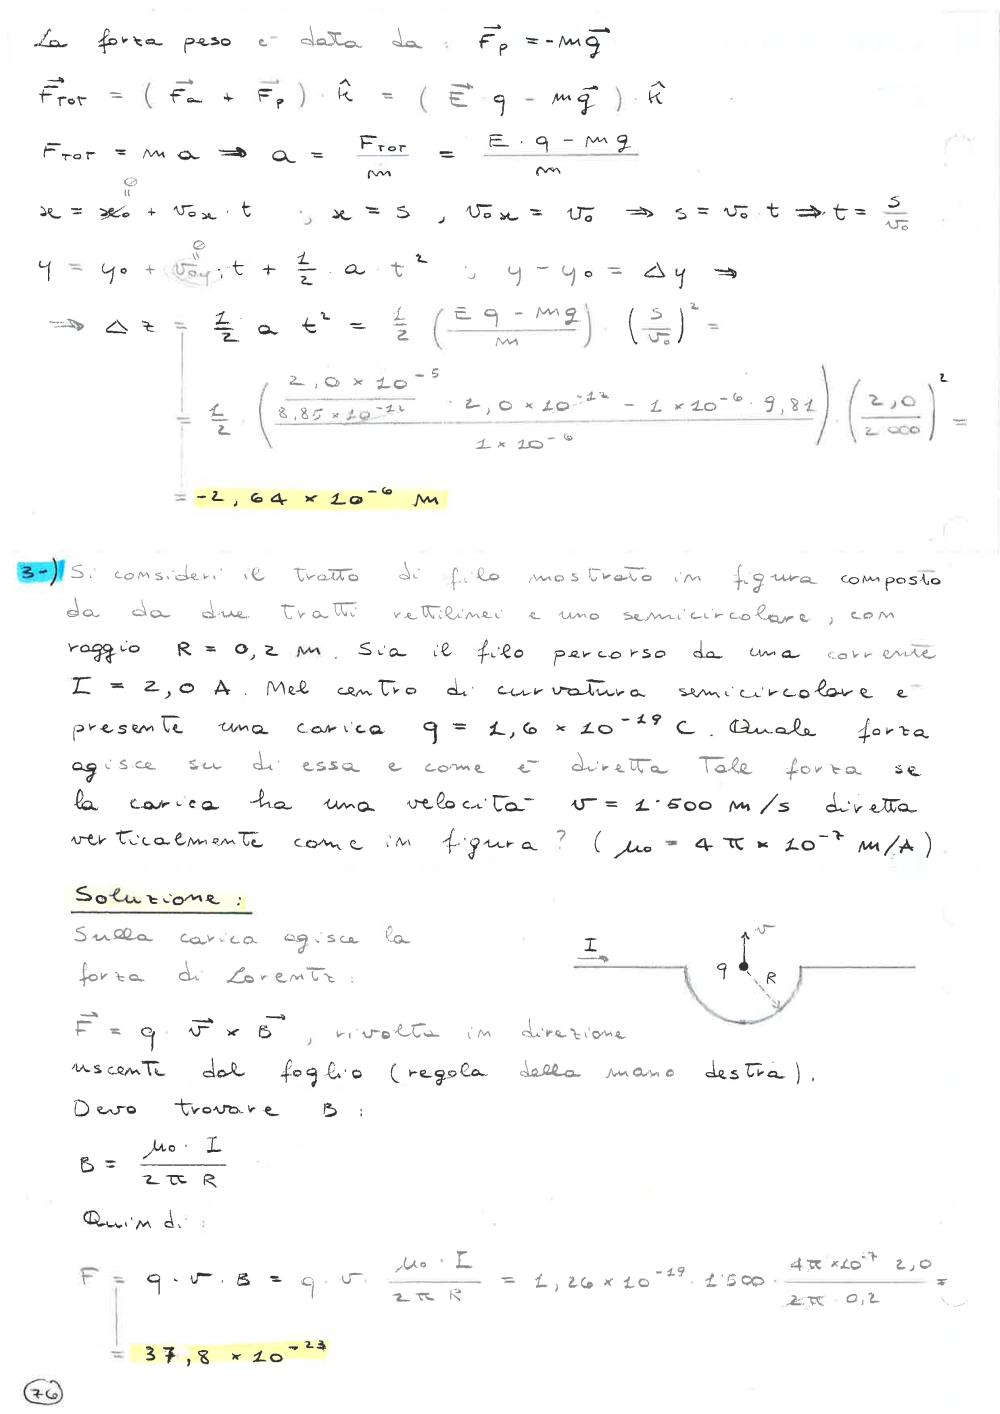 La forza peso è data da : F⃗p = -mg⃗
F⃗TOT = ( F⃗a + F⃗p ) · k̂ = ( E⃗ q - mg⃗ ) · k̂
FTOT = m a ⇒ a = FTOT / m = (E · q - mg) / m
x = x₀ + v₀x · t ; x = s , v₀x = v₀ ⇒ s = v₀ t ⇒ t = s / v₀
y = y₀ + v₀y · t + 1/2 · a t² ; y - y₀ = Δy ⇒
⇒ Δz = 1/2 a t² = 1/2 ( (E q - mg) / m ) · ( s / v₀ )² =
= 1/2 · ( ( 2,0 × 10⁻⁵ / 8,85 × 10⁻¹² · 2,0 × 10⁻¹² - 1 × 10⁻⁶ · 9,81 ) / 1 × 10⁻⁶ ) · ( 2,0 / 2000 )² =
= -2,64 × 10⁻⁶ m
3-) Si consideri il tratto di filo mostrato in figura composto
da da due tratti rettilinei e uno semicircolare, con
raggio R = 0,2 m. Sia il filo percorso da una corrente
I = 2,0 A. Nel centro di curvatura semicircolare è
presente una carica q = 1,6 × 10⁻¹⁹ C. Quale forza
agisce su di essa e come è diretta tale forza se
la carica ha una velocità v = 1·500 m/s diretta
verticalmente come in figura? ( μ₀ = 4π × 10⁻⁷ m/A )
Soluzione :
Sulla carica agisce la
forza di Lorentz:
F⃗ = q · v⃗ × B⃗ , rivolta in direzione
uscente dal foglio (regola della mano destra).
I
v
q
R
Devo trovare B :
B = μ₀ · I / 2π R
Quindi :
F = q · v · B = q · v · μ₀ · I / 2π R = 1,26 × 10⁻¹⁹ · 1·500 · 4π × 10⁻⁷ 2,0 / 2π · 0,2 =
= 37,8 × 10⁻²³
76